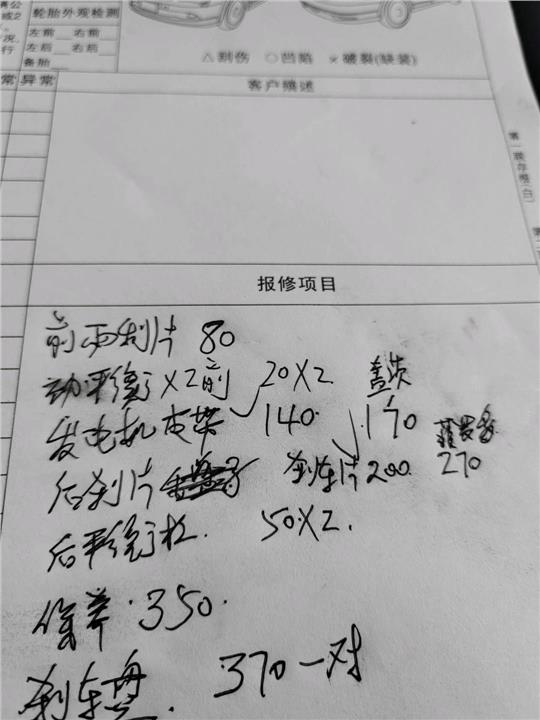 轮胎外观检测
左前 右前
左后 右后
备胎
行
△ 割伤 ○ 凹陷 ★ 破裂(缺装)
常 异常 客户描述
第一联存根(白)
报修项目
前两刹片 80
动平衡 X2前 20X2 盖茨
发电机皮带 140. 170
270
后刹片 刹车片200.
后平衡杆. 50X2.
保养.350.
刹车盘. 370一对